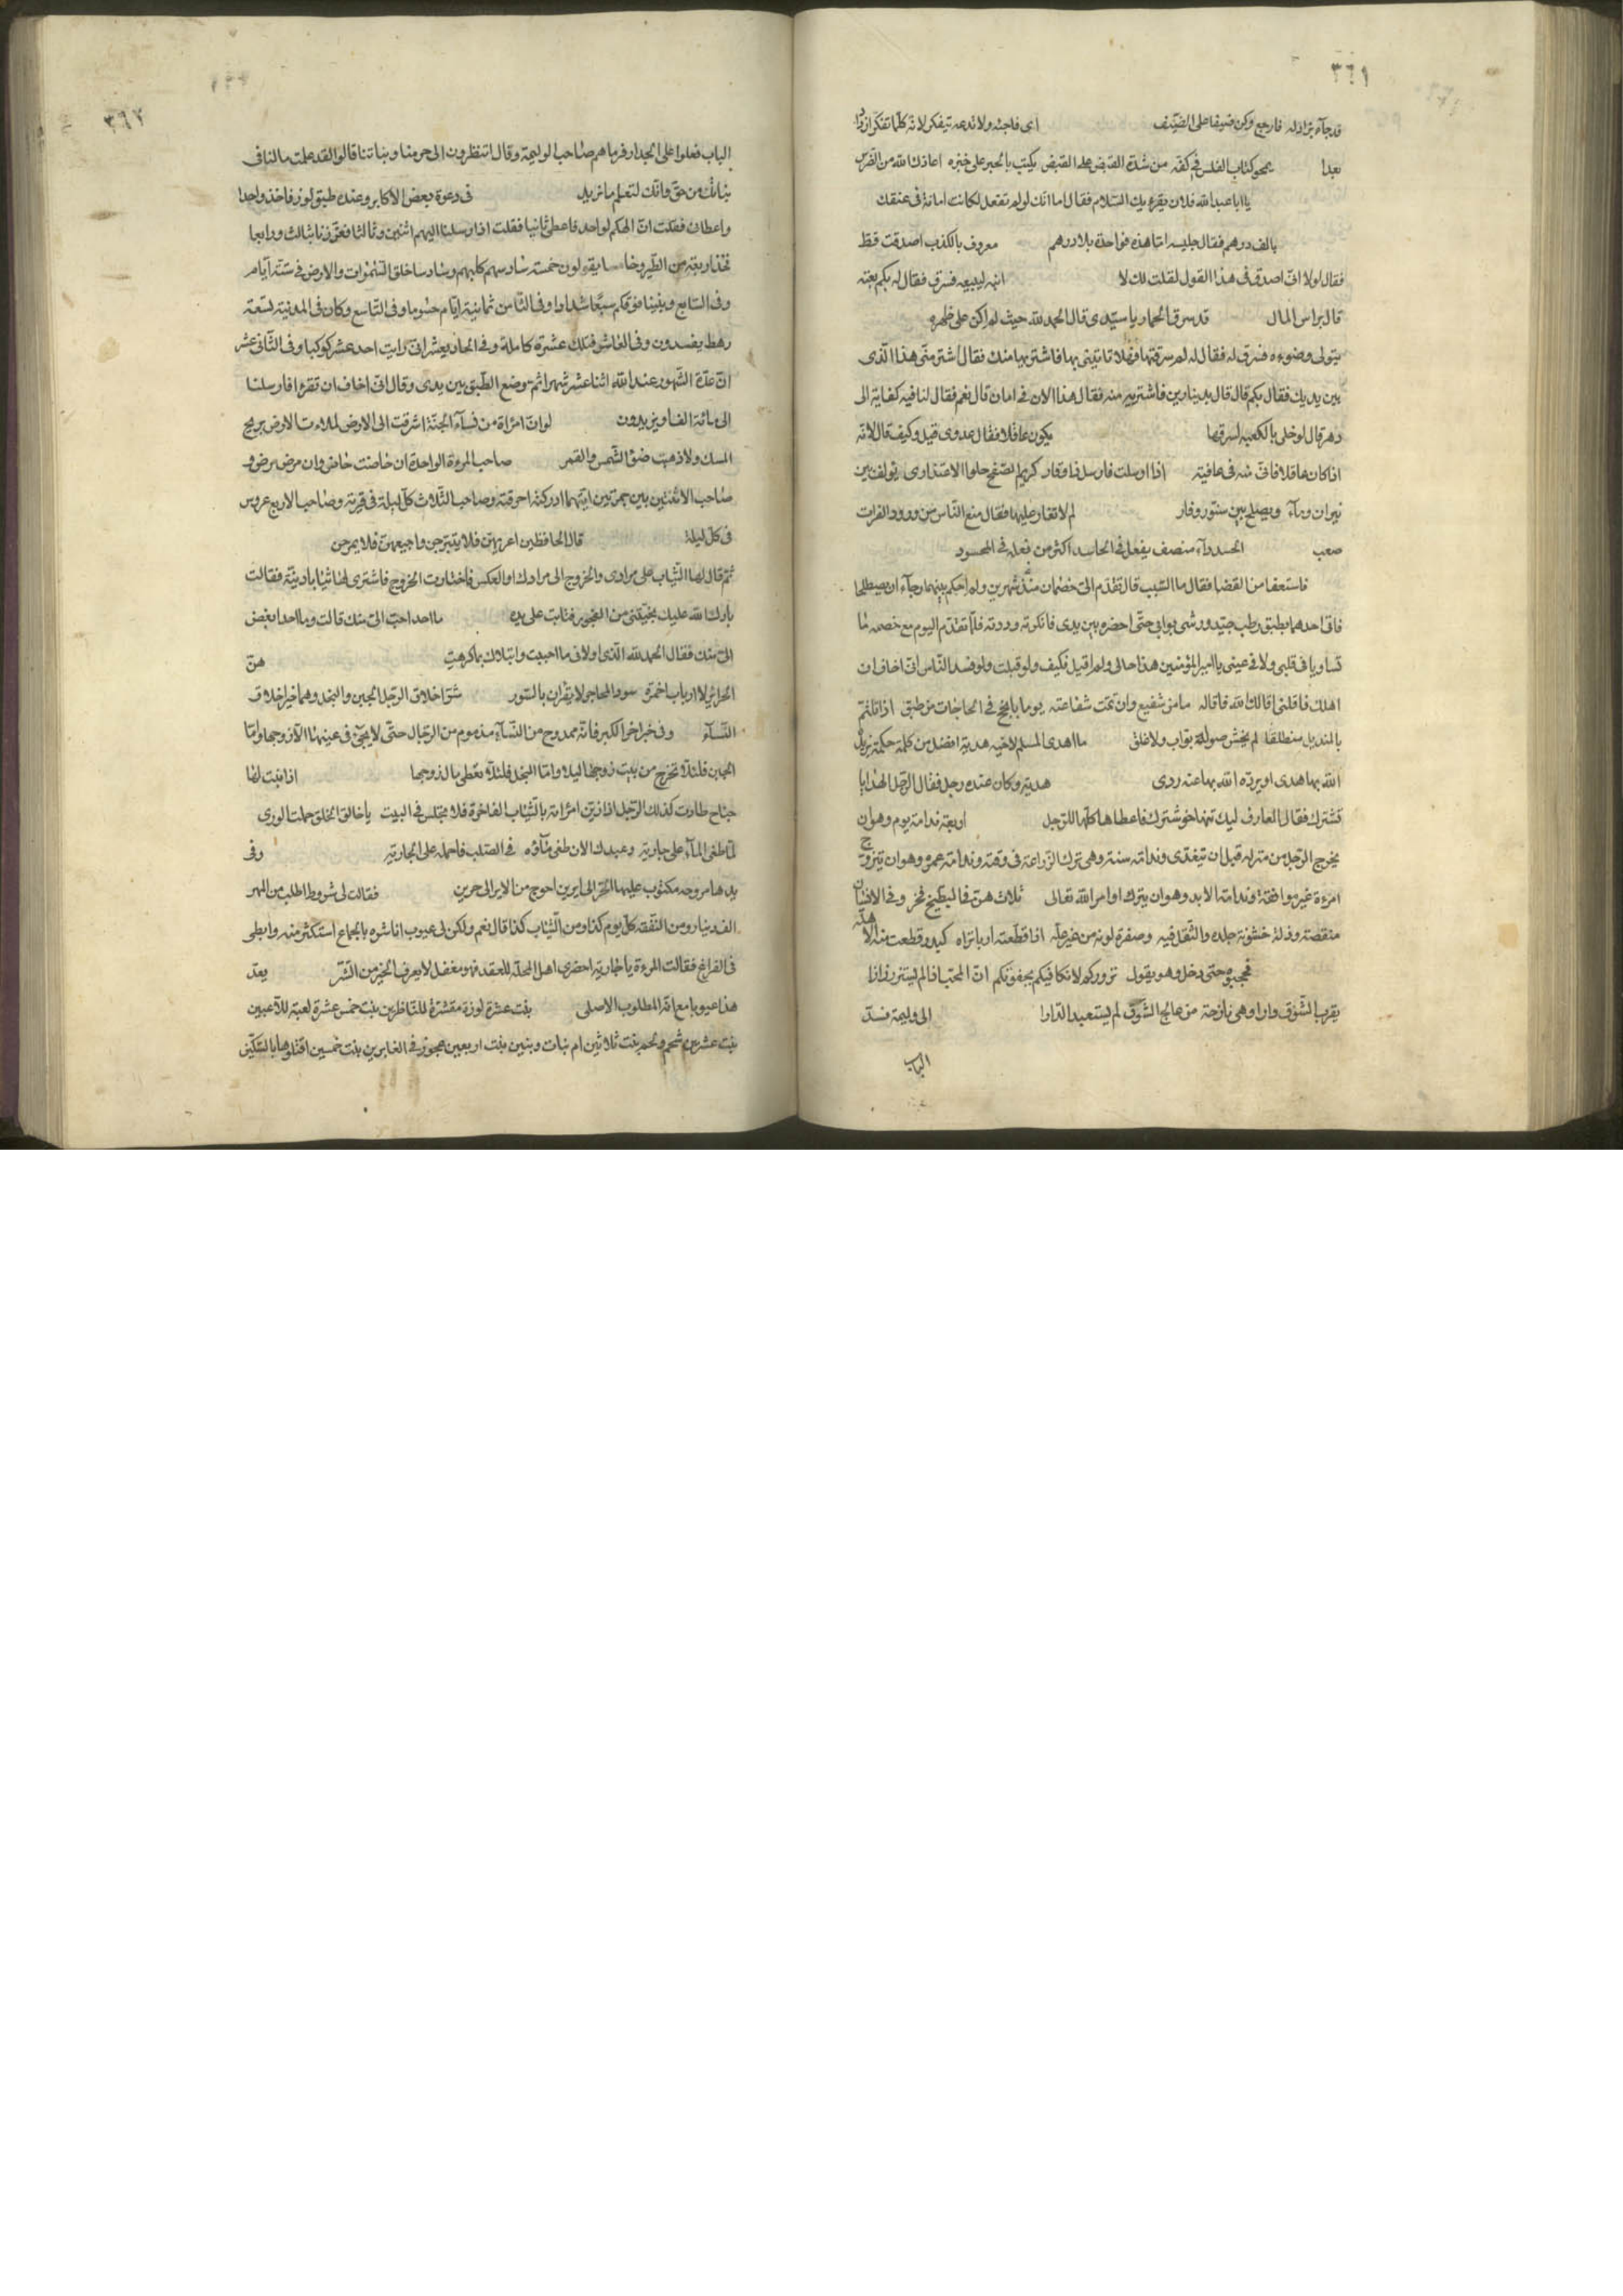 ٣٦١
قد جآء بزاد له فارجع وكن ضيفا على الضيف اى فاجئه ولا تدعه يتفكر لانه كلما تفكر ازداد
بعدا يمحو كتاب الفلس فى كفه من شدة القبض على القبض يكتب بالحبر على خبزه اعاذك الله من الضرس
يا ابا عبد الله فلان يقرء بك السلام فقال اما انك لو لم تفعل لكانت امانة فى عنقك
بالف درهم فقال جليسه اما هذه فواحدة بلا درهم معروف بالكذب اصدقت قط
فقال لولا انى اصدق فى هذا القول لقلت لك لا ابنه ليبيعه فسرق فقال له بكم بعته
قال براس المال قد سرق الحمار يا سيدى قال الحمد لله حيث لم اكن على ظهره
يتولى وضوءه فسرق له فقال له لم سرقتها فهلا تاتينى بها فاشتريها منك فقال اشتر منى هذا الذى
بين يديك فقال بكم قال قال بدينارين فاشتريه منه فقال هذا الان فى امان قال نعم فقال لنا فيه كفاية الى
دهر قال لو خلى بالكعبه لسرقها يكون عاقلا فقال عدوى قيل وكيف قال لانه
اذا كان عاقلا فانى منه فى عافيته اذا ارسلت فارسل ذا وقار كريم الصفح حلوا الاعتذارى يولف بين
نيران ومآء ويصلح بين سنور وفار لم لا تغار عليها فقال منع الناس من ورود الفرات
صعب الحسد دآء منصف يفعل فى الحاسد اكثر من فعله فى المحسود
فاستعفا من القضا فقال ما السبب قال تقدم الى خصمان منذ شهرين ولم احكم بينهما رجآء ان يصطلحا
فاتى احدهما بطبق رطب جيد ورشى بوابى حتى احضره بين يدى فانكرته ورددته فلما تقدم اليوم مع خصمه ما
تساويا فى قلبى ولا فى عينى يا امير المؤمنين هذا حالى ولم اقبل فكيف ولو قبلت ولو فسد الناس انى اخاف ان
اهلك فاقلنى اقالك الله فاقاله ما من شفيع وان تمت شفاعته يوما بانجح فى الحاجات من طبق اذا تلثم
بالمنديل منطلقا لم يخش صولة بواب ولا غلق ما اهدى المسلم لاخيه هدية افضل من كلمة حكمة يزيد
الله بها هدى او يرده الله بها عنه ردى هدية وكان عنده رجل فقال الرجل الهدايا
تشترك فقال العارف ليك تنها خوشترك فاعطاها كلها للرجل اربعة ندامة يوم وهو ان
يخرج الرجل من منزله قبل ان يتغدى وندامة سنة وهى ترك الزراعة فى وقته وندامة عمر وهو ان يتزوج
امرءة غير موافقة وندامة الابد وهو ان يترك اوامر الله تعالى ثلاث هن فى البطيخ فخر وفى الانسان
منقصة وذلة خشونة جلده والثقل فيه وصفرة لونه من غير علة اذا قطعته اربا تراه كبدر قطعت منه الاهلة
فحجبوه حتى دخل وهو يقول نزوركم لا نكافيكم بجفوتكم ان المحب اذا لم يستزر زارا
يقرب الشوق دارا وهى نازحة من عالج الشوق لم يستبعد الدارا الى وليمة فسد
الباب
٣٦٢
الباب فعلوا على الجدار فرماهم صاحب الوليمة وقال اتنظرون الى حرمنا وبناتنا قالوا لقد علمت ما لنا فى
بناتك من حق وانك لتعلم ما نريد فى دعوة بعض الاكابر وعنده طبق لوز فاخذ واحدا
واعطانى فقلت ان الهكم لواحد فاعطى ثانيا فقلت اذ ارسلنا اليهم اثنين وثالثا فعززنا بثالث ورابعا
فخذ اربعة من الطير وخامسا يقولون خمسة سادسهم كلبهم وسادسا خلق السموات والارض فى ستة ايام
وفى السابع وبنينا فوقكم سبعا شدادا وفى الثامن ثمانية ايام حسوما وفى التاسع وكان فى المدينة تسعة
رهط يفسدون وفى العاشر فتلك عشرة كاملة وفى الحاديعشر انى رايت احد عشر كوكبا وفى الثانى عشر
ان عدة الشهور عند الله اثنا عشر شهرا ثم وضع الطبق بين يدى وقال انى اخاف ان تقرء فارسلنا
الى مائة الف او يزيدون لو ان امراة من نسآء الجنة اشرقت الى الارض لملاءت الارض بريح
المسك ولاذهبت ضوء الشمس والقمر صاحب المرءة الواحدة ان حاضت حاض وان مرض مرض و
صاحب الاثنتين بين جمرتين ايتهما ادركته احرقته وصاحب الثلاث كل ليلة فى قرية وصاحب الاربع عروس
فى كل ليلة قال الحافظين اعريهن فلا يتبرجن واجيعهن فلا يمرحن
ثم قال لها الثياب على مرادى والخروج الى مرادك او العكس فاختارت الخروج فاشترى لها ثيابا دنيئة فقالت
بارك الله عليك نجيتنى من الفجور فتابت على يده ما احد احب الى منك قالت وما احد ابغض
الى منك فقال الحمد لله الذى اولانى ما احببت وابتلاك بما كرهت هن
الحرائر لا ارباب اخمرة سود المحاجر لا يقران بالسور شر اخلاق الرجل الجبن والبخل وهما خير اخلاق
النسآء وفى خبر اخر الكبر فانه ممدوح من النسآء مذموم من الرجال حتى لا يجئ فى عينها الا زوجها واما
الجبن فلئلا تخرج من بيت زوجها ليلا واما البخل فلئلا تعطى مال زوجها اذا نبت لها
جناح طارت كذلك الرجل اذا زين امراته بالثياب الفاخرة فلا تجلس فى البيت يا خالق الخلق حملت الورى
لما طغى المآء على جارية وعبدك الان طغى مآؤه فى الصلب فاحمله على الجارية وفى
يدها مروحه مكتوب عليها الحر الى ايرين احوج من الاير الى حرين فقالت لى شروط اطلب من المهر
الف دينار ومن النفقه كل يوم كذا ومن الثياب كذا قال نعم ولكن لى عيوب انا شره بالجماع استكثر منه وابطى
فى الفراغ فقالت المرءة يا جارية احضرى اهل المحلة للعقد فهو مغفل لا يعرف الخير من الشر يعد
هذا عيوبا مع انه المطلوب الاصلى بنت عشرة لوزة مقشرة للناظرين بنت خمس عشرة لعبة للاعبين
بنت عشرين شحم ولحم بنت ثلاثين ام بنات وبنين بنت اربعين عجوز فى الغابرين بنت خمسين اقتلوها بالسكين